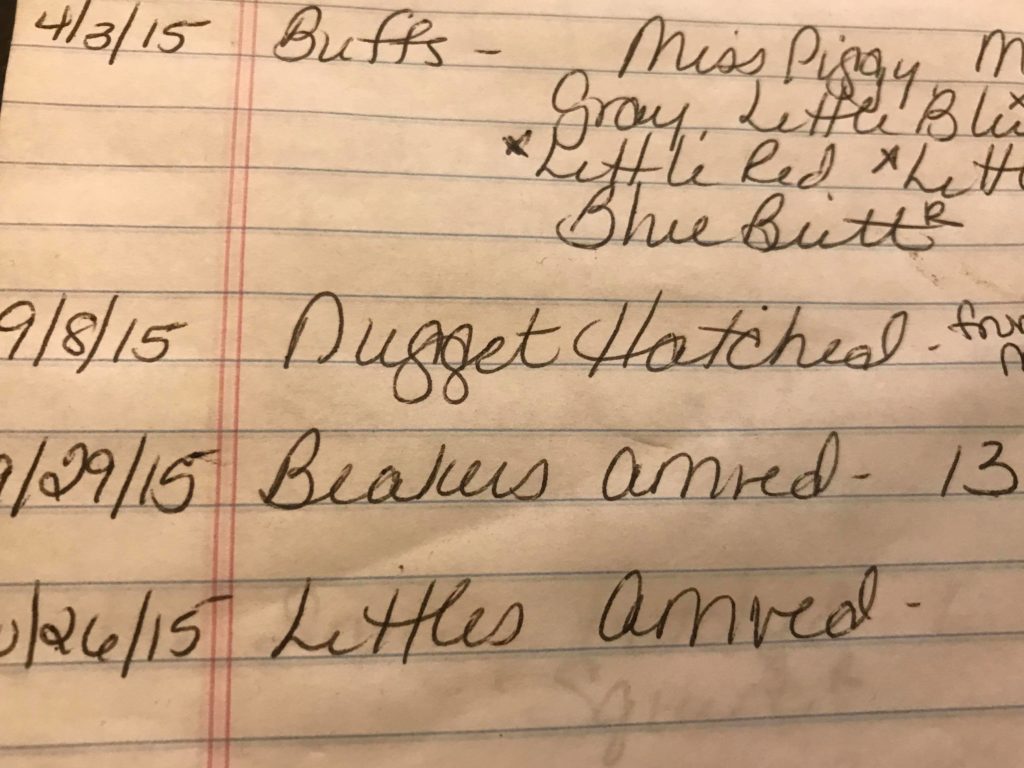 4/3/15 Buffs - Miss Piggy, M
Gray, Little Blue
*Little Red *Litt
Blue Butt R
9/8/15 Dugget Hatched - from
9/29/15 Beakers arrived - 13
/26/15 Littles Arrived -